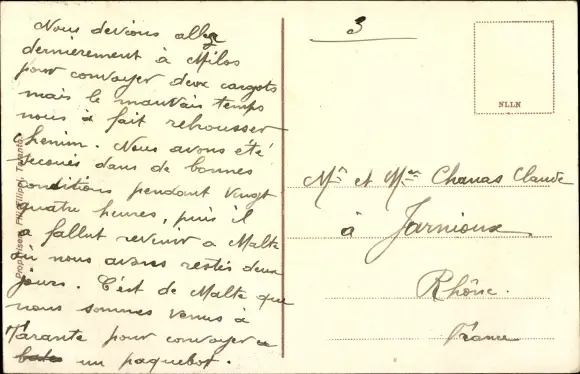 Nous devions aller
dernièrement à Milos
pour convoyer deux cargots
mais le mauvais temps
nous a fait rebrousser
chemin. Nous avons été
secoués dans de bonnes
conditions pendant vingt
quatre heures, puis il
a fallut revenir a Malte
où nous avons restés deux
jours. C'est de Malte que
nous sommes venus à
Tarante pour convoyer
un paquebot.
Filippi, Taranto
3
NLLN
Mr et Mme Chanas Claude
à Jarnioux
Rhône.
France